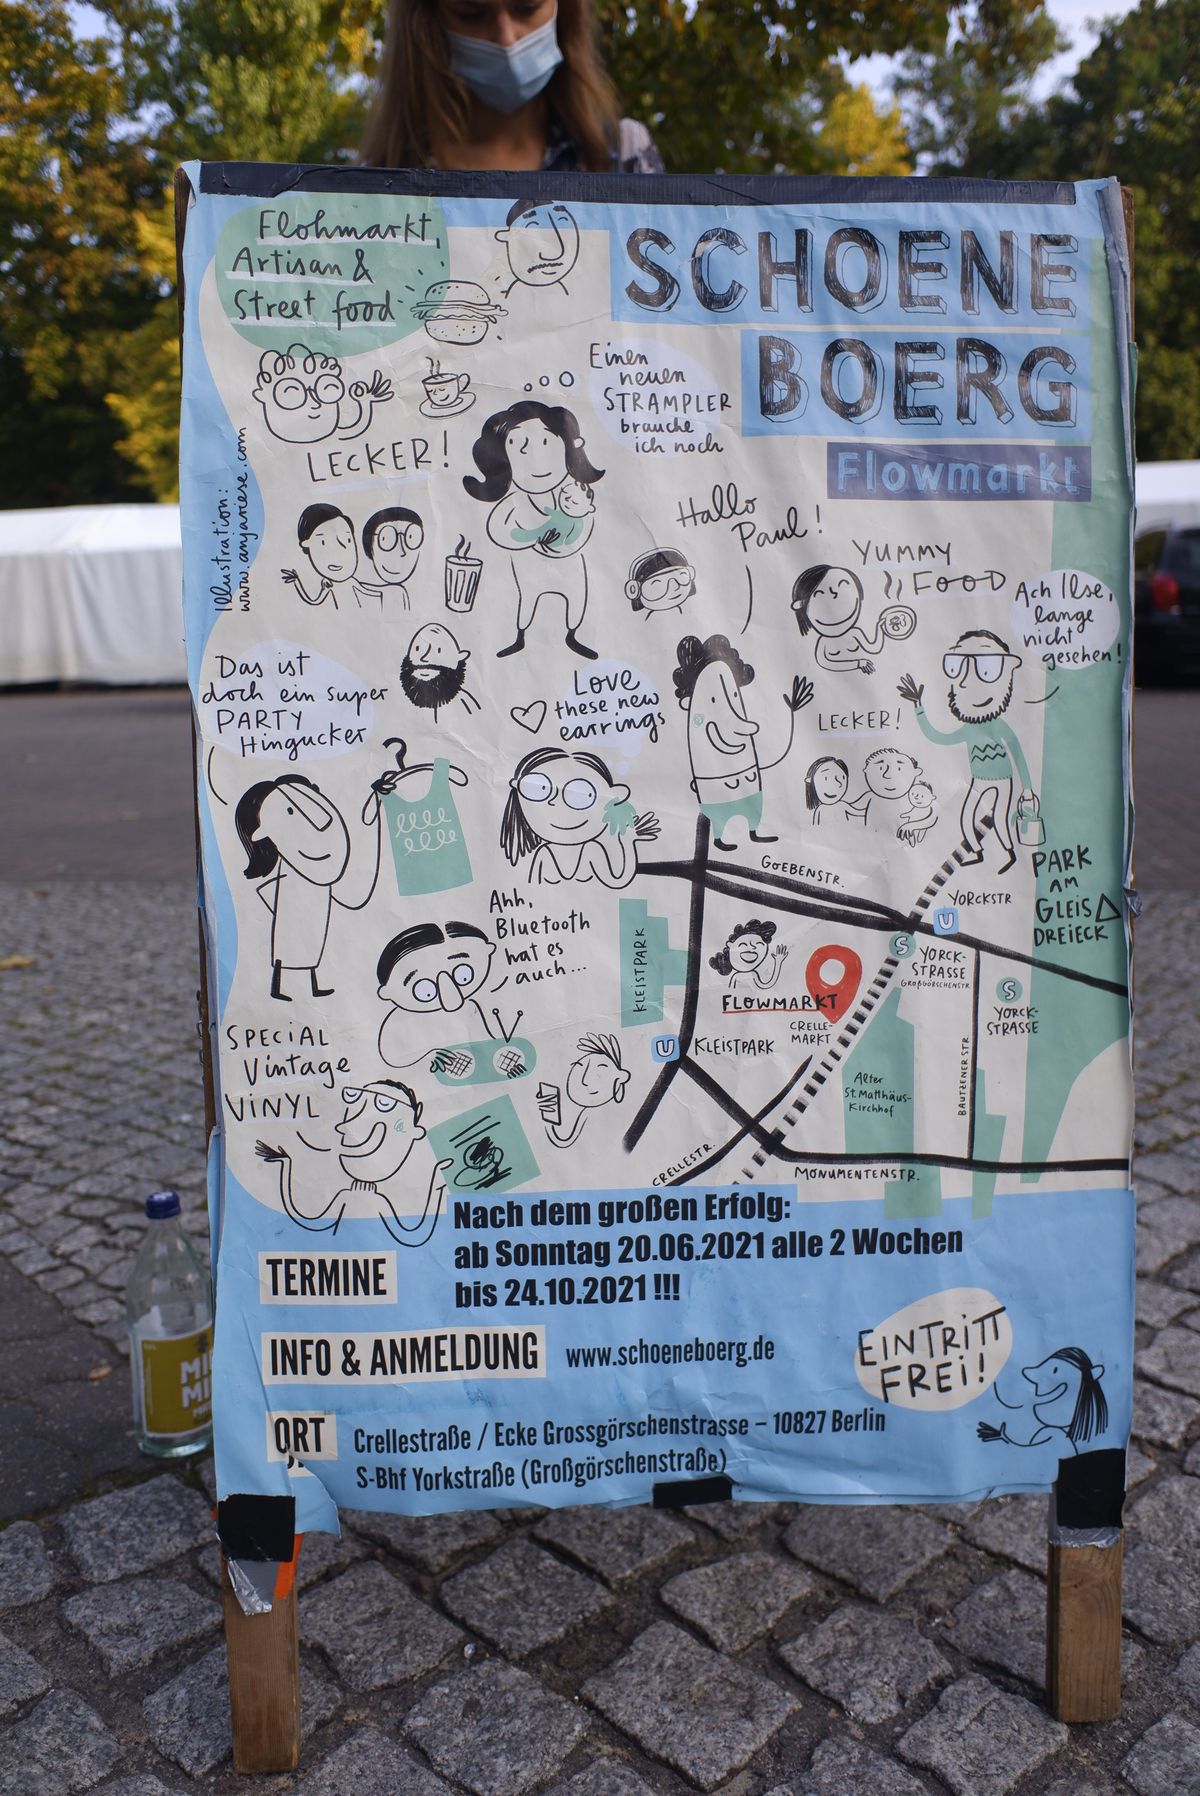 Flohmarkt,
Artisan &
Street food
SCHOENE
BOERG
Flowmarkt
Einen
neuen
STRAMPLER
brauche
ich noch
LECKER!
Illustration:
www.anjariese.com
Hallo
Paul!
YUMMY
FOOD
Ach Ilse,
lange
nicht
gesehen!
Das ist
doch ein super
PARTY
Hingucker
Love
these new
earrings
LECKER!
Ahh,
Bluetooth
hat es
auch...
SPECIAL
Vintage
VINYL
GOEBENSTR.
YORCKSTR
U
PARK
AM
GLEIS
DREIECK
S
YORCK-
STRASSE
GROßGÖRSCHENSTR.
S
YORCK-
STRASSE
KLEISTPARK
FLOWMARKT
CRELLE-
MARKT
U
KLEISTPARK
Alter
St. Matthäus-
Kirchhof
BAUTZENER STR
CRELLESTR.
MONUMENTENSTR.
Nach dem großen Erfolg:
ab Sonntag 20.06.2021 alle 2 Wochen
bis 24.10.2021 !!!
TERMINE
INFO & ANMELDUNG
www.schoeneboerg.de
EINTRITT
FREI!
ORT
Crellestraße / Ecke Grossgörschenstrasse – 10827 Berlin
S-Bhf Yorkstraße (Großgörschenstraße)